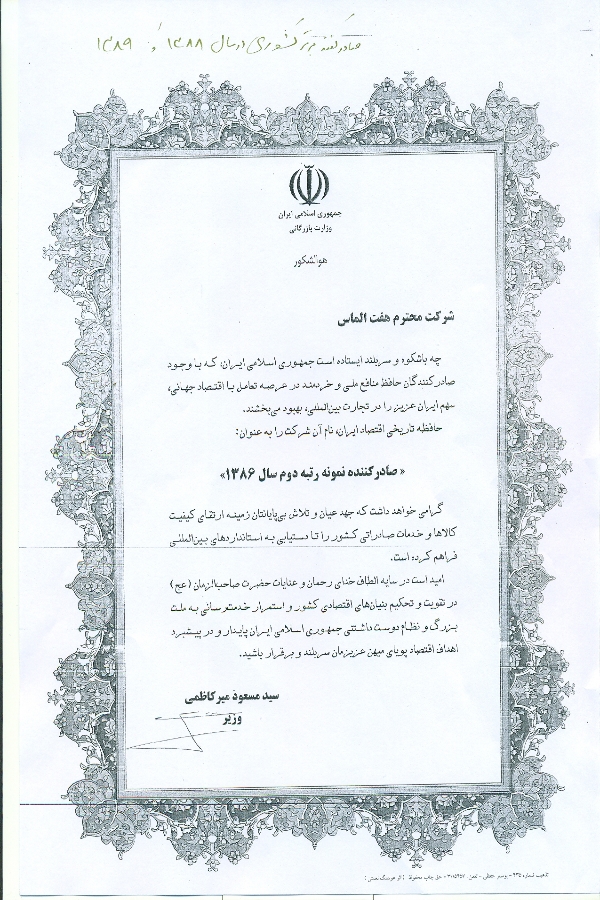 صادر کننده برتر کشوری در سال ۱۳۸۸ و ۱۳۸۹
جمهوری اسلامی ایران
وزارت بازرگانی
هوالشکور
شرکت محترم هفت الماس
چه باشکوه و سربلند ایستاده است جمهوری اسلامی ایران، که با وجود
صادرکنندگان حافظ منافع ملی و خردمند در عرصه تعامل با اقتصاد جهانی،
سهم ایران عزیز را در تجارت بین‌المللی، بهبود می‌بخشند.
حافظه تاریخی اقتصاد ایران، نام آن شرکت را به عنوان:
« صادرکننده نمونه رتبه دوم سال ۱۳۸۶»
گرامی خواهد داشت که جهد عیان و تلاش بی‌پایانتان زمینه ارتقای کیفیت
کالاها و خدمات صادراتی کشور را تا دستیابی به استانداردهای بین‌المللی
فراهم کرده است.
امید است در سایه الطاف خدای رحمان و عنایات حضرت صاحب‌الزمان (عج)
در تقویت و تحکیم بنیان‌های اقتصادی کشور و استمرار خدمت‌رسانی به ملت
بزرگ و نظام دوست داشتنی جمهوری اسلامی ایران پایدار و در پیشبرد
اهداف اقتصاد پویای میهن عزیزمان سربلند و برقرار باشید.
سید مسعود میرکاظمی
وزیر